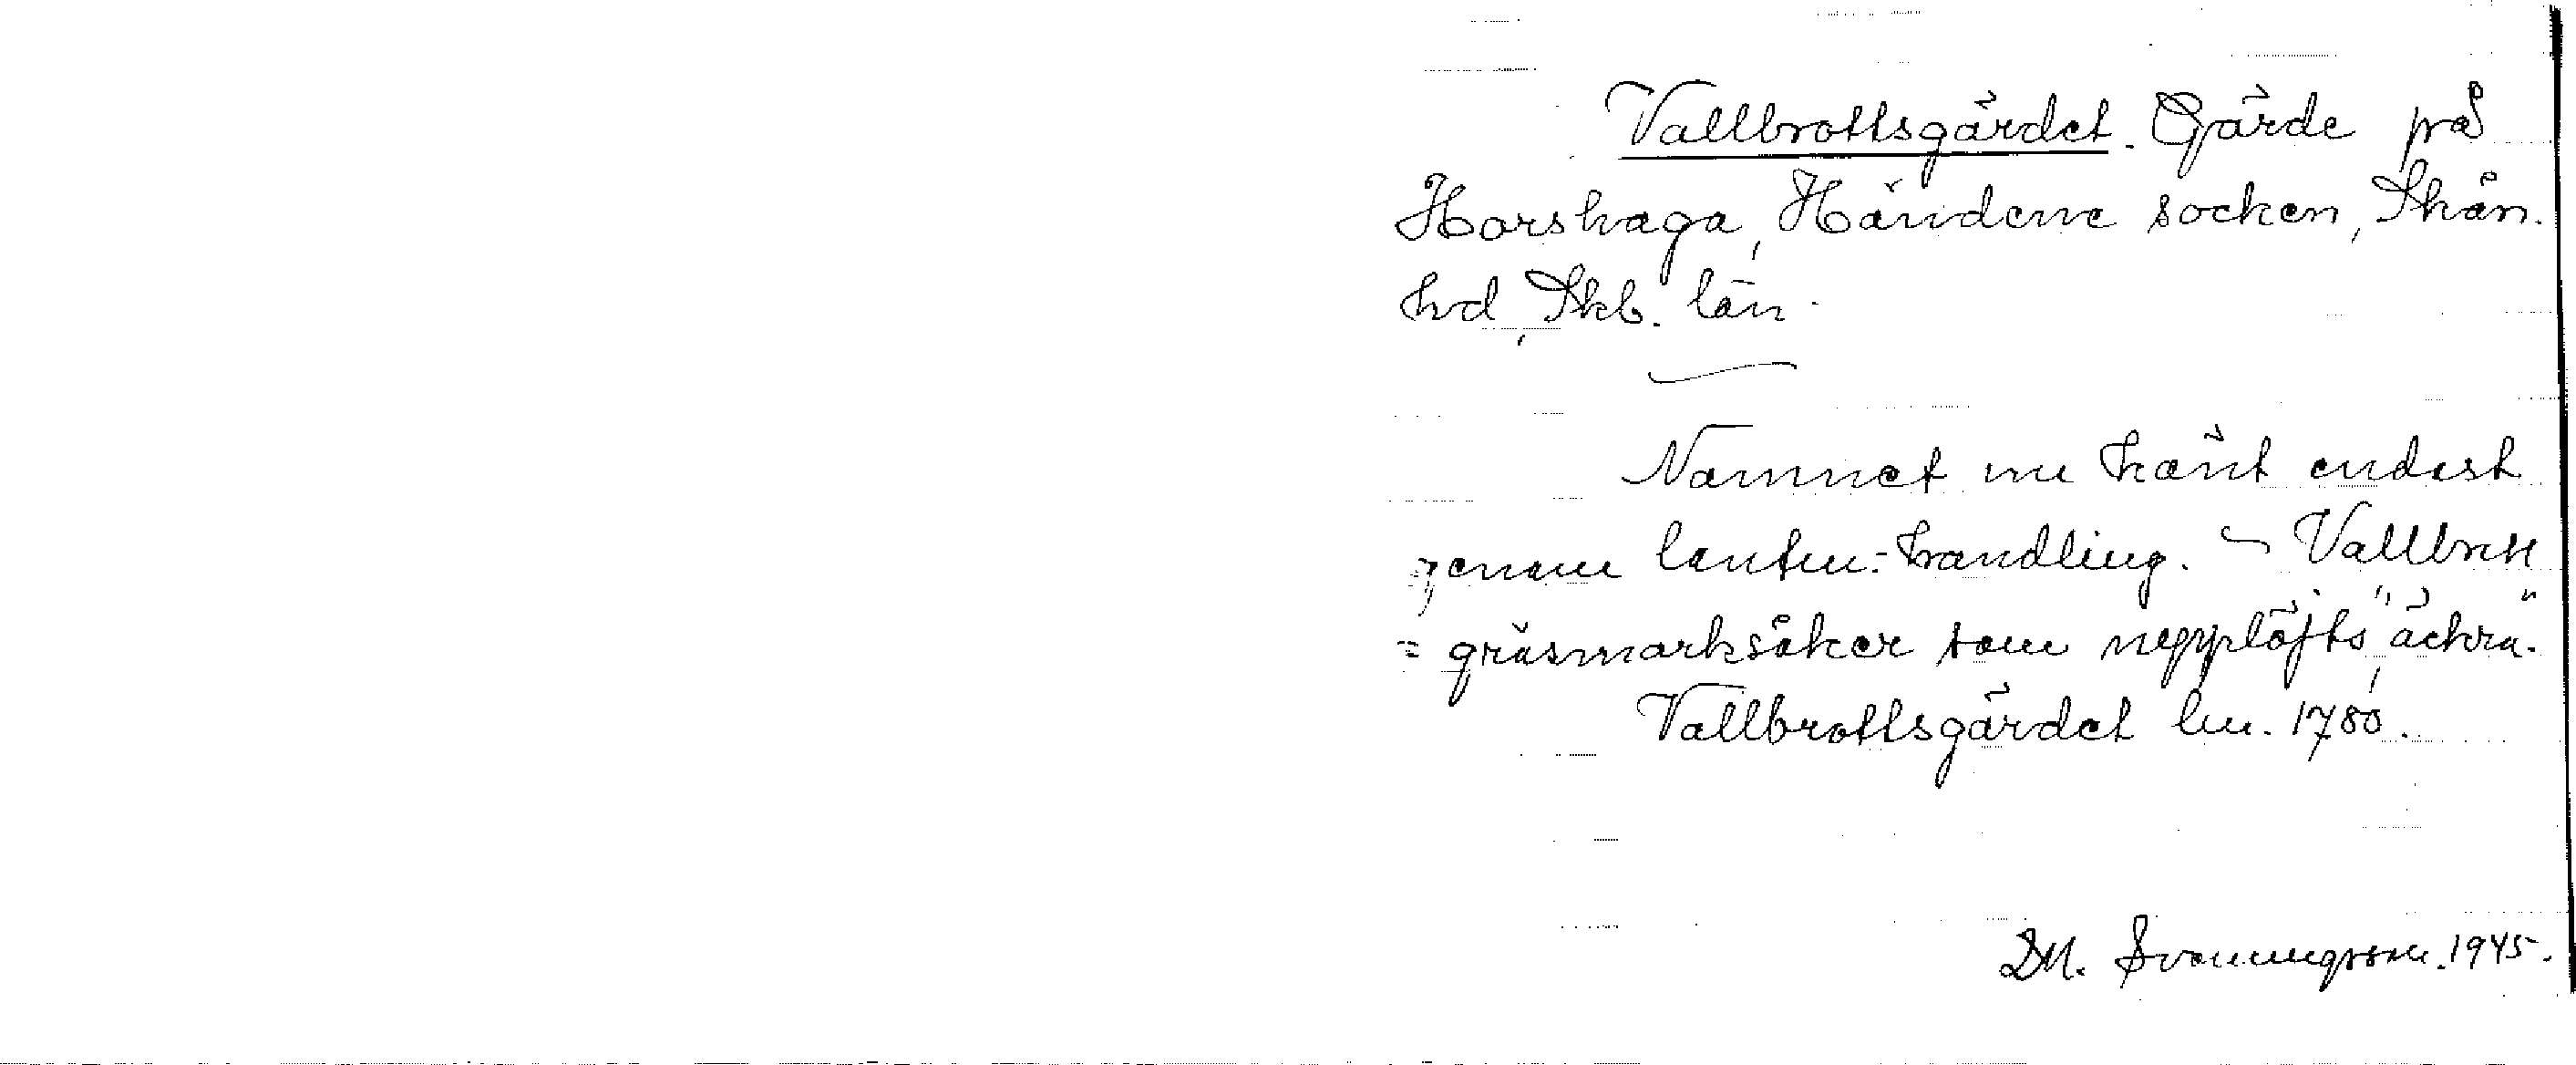 Vallbrottsgärdet. Gärde på
Horshaga, Händene socken, Skån.
hd, Skb. län.
Namnet nu känt endast
genom lantm.-handling. – Vallbrott
= gräsmarksåker som uppplöjts, "åckra".
Vallbrottsgärdet lm. 1780.
D.M. Svenungsson. 1945.